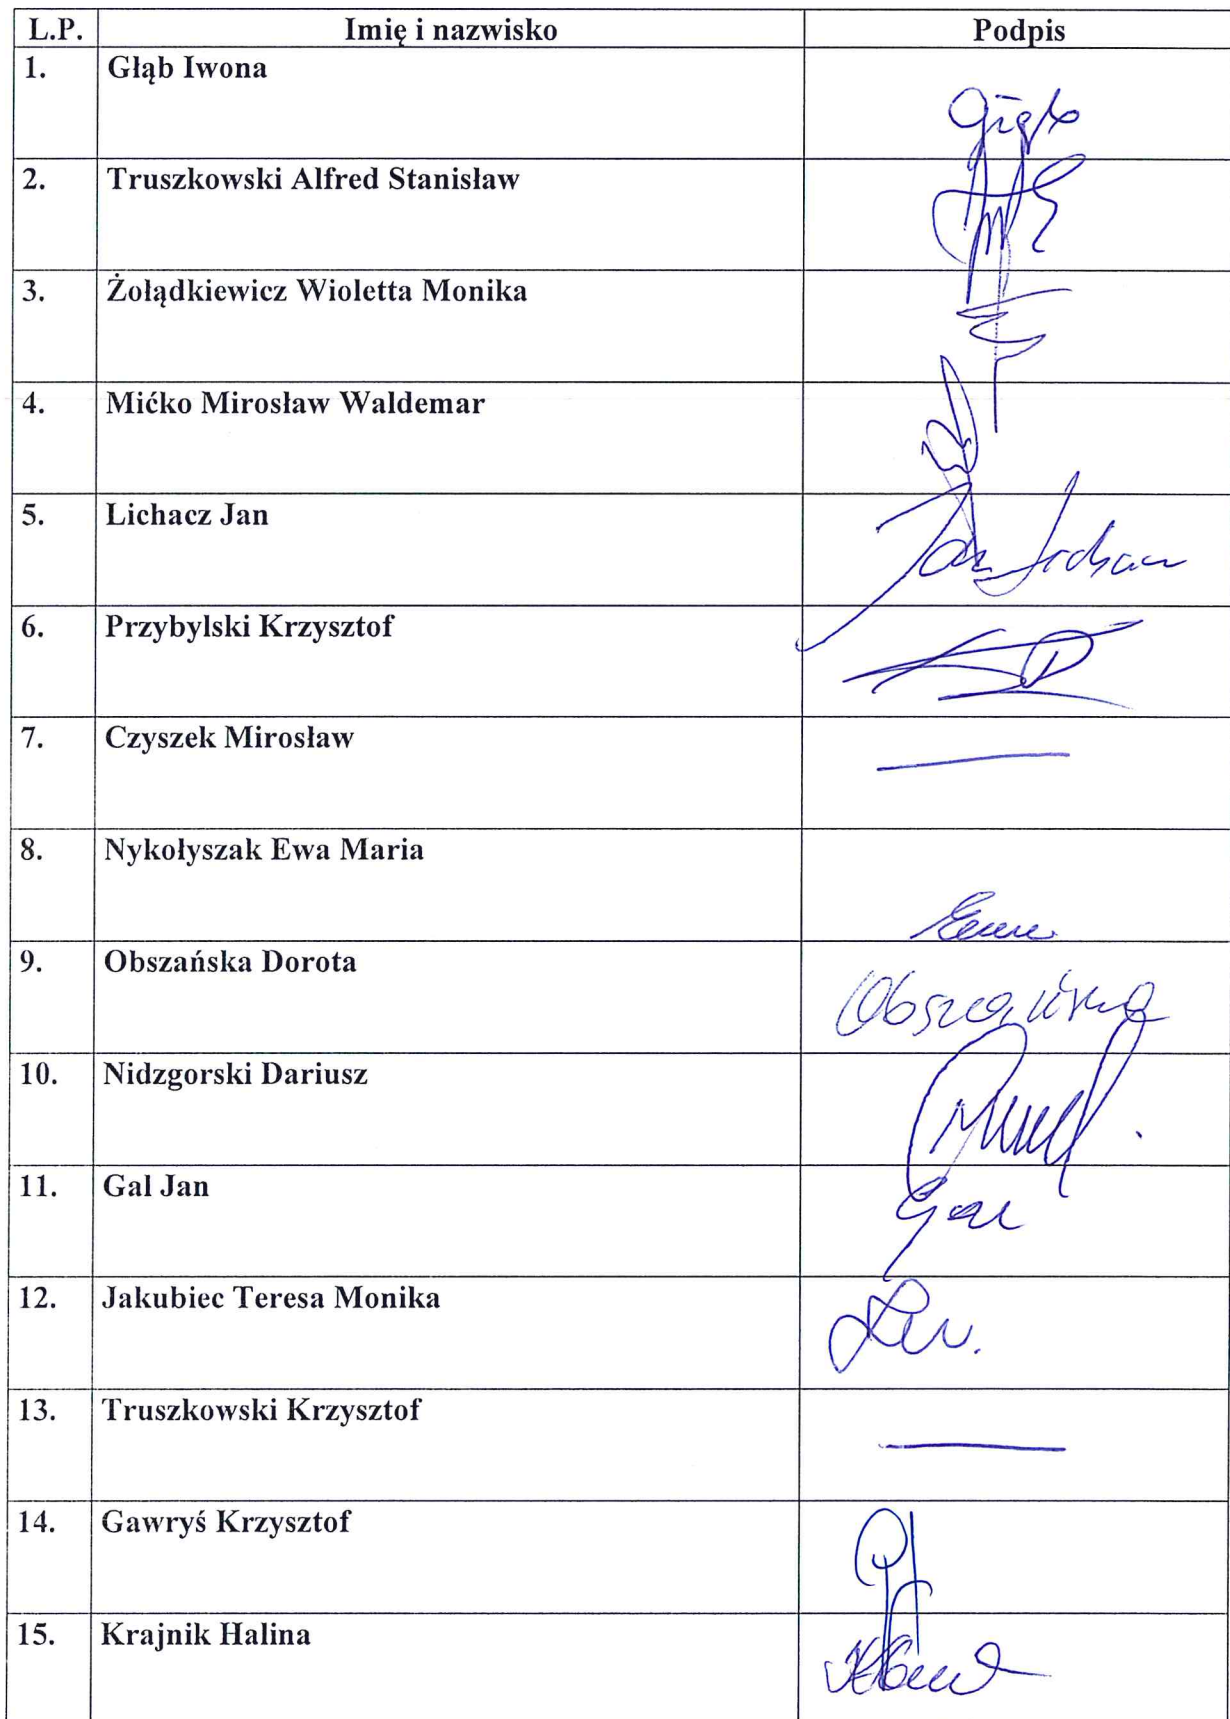 L.P. Imię i nazwisko Podpis
1. Głąb Iwona
2. Truszkowski Alfred Stanisław
3. Żołądkiewicz Wioletta Monika
4. Mićko Mirosław Waldemar
5. Lichacz Jan
Jan
6. Przybylski Krzysztof
7. Czyszek Mirosław
8. Nykołyszak Ewa Maria
9. Obszańska Dorota
Obszańska
10. Nidzgorski Dariusz
11. Gal Jan
Gal
12. Jakubiec Teresa Monika
13. Truszkowski Krzysztof
14. Gawryś Krzysztof
15. Krajnik Halina